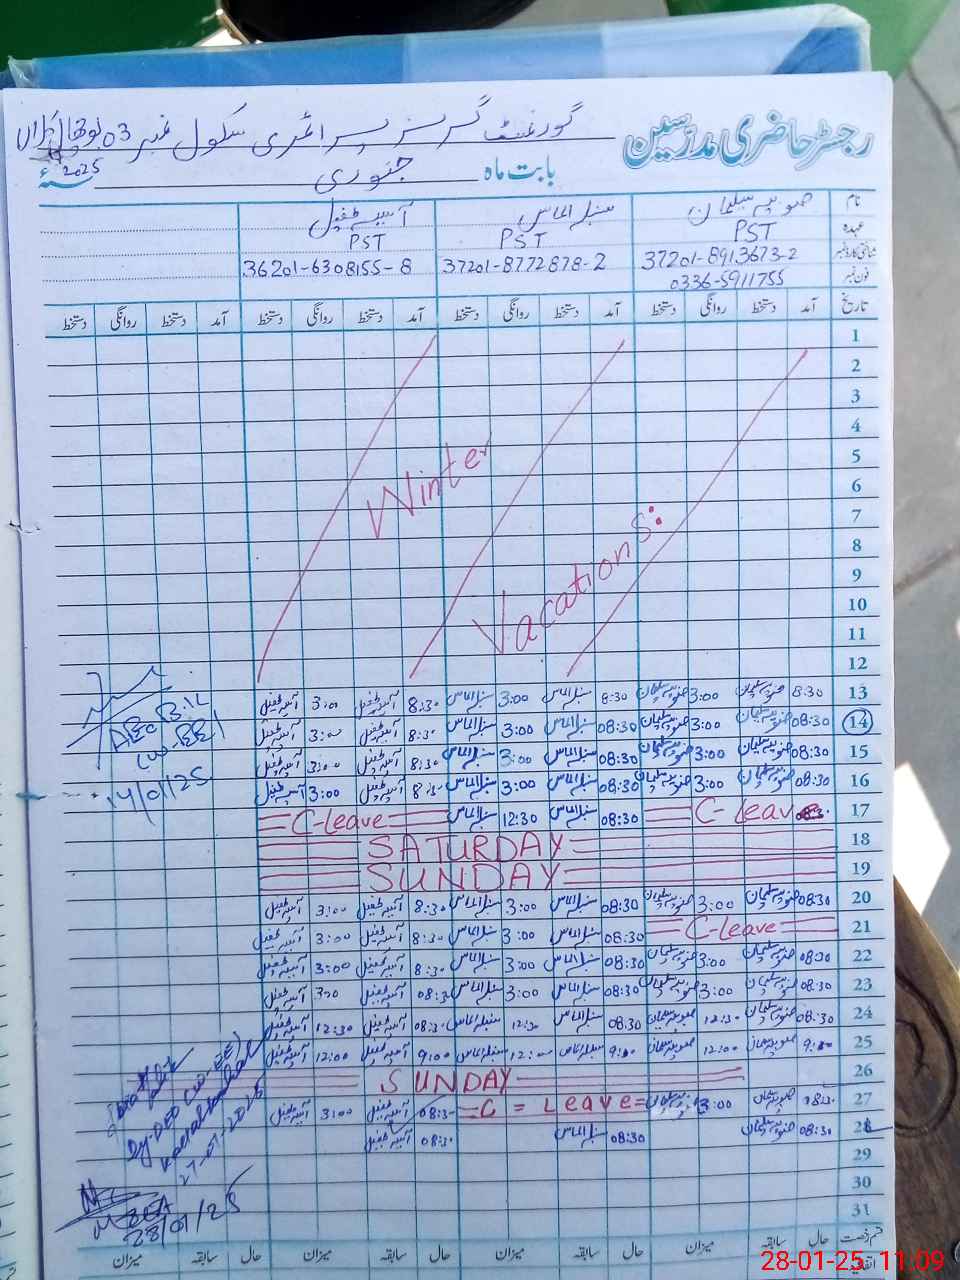 رجسٹر حاضری مدرسین گورنمنٹ گرلز پرائمری سکول نمبر 03
بابت ماہ جنوری 2025ء
نام صوبیہ سلیمان سنبل الماس آسیہ طفیل
عہدہ PST PST PST
شناختی کارڈ نمبر 37201-8913673-2 37201-8772878-2 36201-6308155-8
فون نمبر 0336-5911755
تاریخ آمد دستخط روانگی دستخط آمد دستخط روانگی دستخط آمد دستخط روانگی دستخط آمد دستخط روانگی دستخط
1
2
3
4
5
6
7
8
9
10
11
12
Winter
Vacations:
13 8:30 صوبیہ سلیمان 3:00 صوبیہ سلیمان 8:30 سنبل الماس 3:00 سنبل الماس 8:30 آسیہ طفیل 3:00 آسیہ طفیل
14 08:30 صوبیہ سلیمان 3:00 صوبیہ سلیمان 08:30 سنبل الماس 3:00 سنبل الماس 8:30 آسیہ طفیل 3:00 آسیہ طفیل
15 08:30 صوبیہ سلیمان 3:00 صوبیہ سلیمان 08:30 سنبل الماس 3:00 سنبل الماس 8:30 آسیہ طفیل 3:00 آسیہ طفیل
16 08:30 صوبیہ سلیمان 3:00 صوبیہ سلیمان 08:30 سنبل الماس 3:00 سنبل الماس 8:30 آسیہ طفیل 3:00 آسیہ طفیل
17 C-Leave 08:30 سنبل الماس 12:30 سنبل الماس C-Leave
18 SATURDAY
19 SUNDAY
20 08:30 صوبیہ سلیمان 3:00 صوبیہ سلیمان 08:30 سنبل الماس 3:00 سنبل الماس 8:30 آسیہ طفیل 3:00 آسیہ طفیل
21 C-Leave 08:30 سنبل الماس 3:00 سنبل الماس 8:30 آسیہ طفیل 3:00 آسیہ طفیل
22 08:30 صوبیہ سلیمان 3:00 صوبیہ سلیمان 08:30 سنبل الماس 3:00 سنبل الماس 8:30 آسیہ طفیل 3:00 آسیہ طفیل
23 08:30 صوبیہ سلیمان 3:00 صوبیہ سلیمان 08:30 سنبل الماس 3:00 سنبل الماس 08:30 آسیہ طفیل 3:00 آسیہ طفیل
24 08:30 صوبیہ سلیمان 12:30 صوبیہ سلیمان 08:30 سنبل الماس 12:30 سنبل الماس 08:30 آسیہ طفیل 12:30 آسیہ طفیل
25 9:00 صوبیہ سلیمان 12:00 صوبیہ سلیمان 9:00 سنبل الماس 12:00 سنبل الماس 9:00 آسیہ طفیل 12:00 آسیہ طفیل
26 SUNDAY
27 08:30 صوبیہ سلیمان 3:00 صوبیہ سلیمان C = Leave = 08:30 آسیہ طفیل 3:00 آسیہ طفیل
28 08:30 صوبیہ سلیمان 08:30 سنبل الماس 08:30 آسیہ طفیل
29
30
31
14/01/25
Dy-DEO
27-01-2025
MEA
28/01/25
قسم رخصت حال سابقہ میزان حال سابقہ میزان حال سابقہ میزان حال سابقہ میزان
28-01-25 11:09